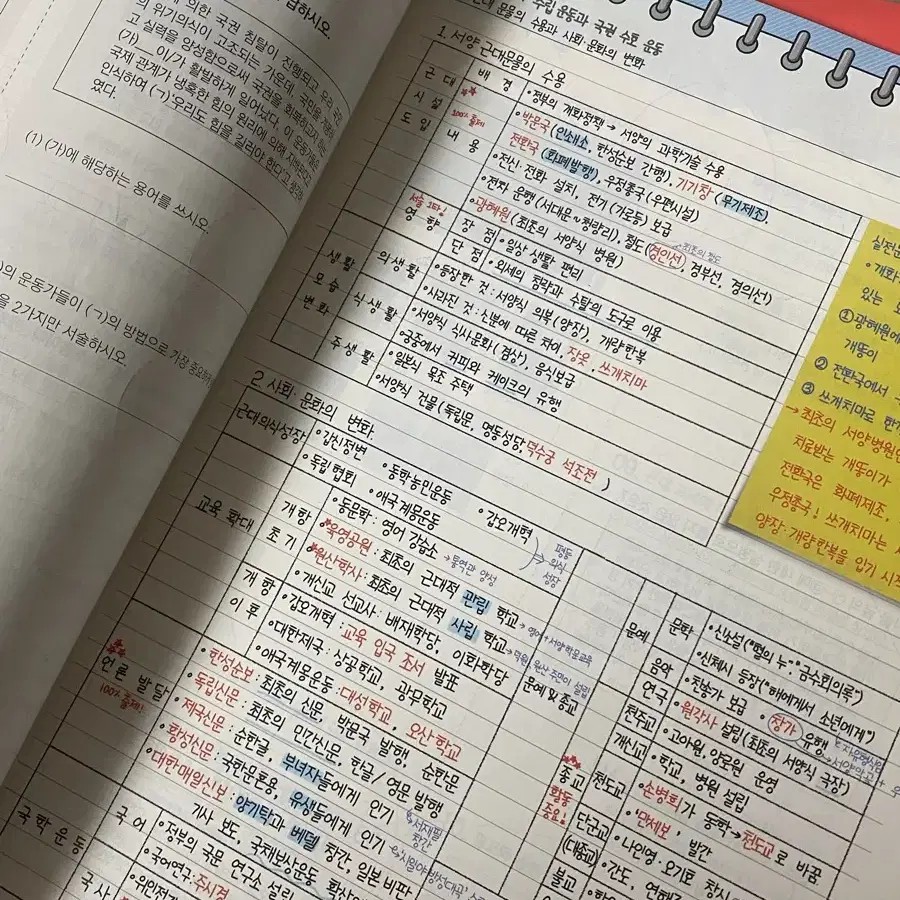 답하시오.
의한 국권 침탈이 진행되고
의 위기의식이 고조되는 가운데, 국민을 계몽하
고 실력을 양성함으로써 국권을 회복하고자 하는
(가) 이/가 활발하게 일어났다. 이 운동가들은
국제 관계가 냉혹한 힘의 원리에 의해 지배된다고
인식하여 (ㄱ)우리도 힘을 길러야 한다고 생각하
였다.
(1) (가)에 해당하는 용어를 쓰시오.
)의 운동가들이 (ㄱ)의 방법으로 가장 중요하게
을 2가지만 서술하시오.
수립 운동과 국권 수호 운동
근대 문물의 수용과 사회·문화의 변화
1. 서양 근대문물의 수용
근대 시설 도입
배경
•정부의 개화정책 → 서양의 과학기술 수용
100% 출제
내용
•박문국(인쇄소, 한성순보 간행), 기기창(무기제조),
전환국(화폐발행), 우정총국(우편시설)
•전신·전화 설치, 전기(가로등) 보급
•전차 운행(서대문~청량리), 철도(경인선, 경부선, 경의선)
최초의 철도
•광혜원(최초의 서양식 병원)
서술 1타!
영향
장점 •일상 생활 편리
단점 •외세의 침략과 수탈의 도구로 이용
생활 모습 변화
의생활
•등장한 것: 서양식 의복(양장), 개량한복
•사라진 것: 신분에 따른 차이, 장옷, 쓰개치마
식생활
•서양식 식사문화(겸상), 음식보급
•궁중에서 커피와 케이크의 유행
주생활
•일본식 목조 주택
•서양식 건물(독립문, 명동성당, 덕수궁 석조전)
2. 사회·문화의 변화
근대의식성장
•갑신정변 •동학농민운동 •갑오개혁
•독립협회 •애국계몽운동
평등 의식 성장
교육 확대
개항 초기
•동문학: 영어 강습소 → 통역관 양성
*육영공원: 최초의 근대적 관립 학교 → 영어+서양학문교육
*원산학사: 최초의 근대적 사립 학교 → 덕원·원산 주민이 설립
개항 이후
•개신교 선교사: 배재학당, 이화학당
•갑오개혁: 교육 입국 조서 발표
•대한제국: 상공학교, 광무학교
•애국계몽운동: 대성학교, 오산학교
언론 발달
100% 출제!
•한성순보: 최초의 신문, 박문국 발행, 순한문
•독립신문: 최초의 민간신문, 한글/영문 발행
•제국신문: 순한글, 부녀자들에게 인기
서재필 창간
•황성신문: 국한문혼용, 유생들에게 인기
시일야방성대곡
•대한매일신보: 양기탁과 베델 창간, 일본 비판
기사 보도, 국채보상운동 확산에
국학 운동
국어
•정부의 국문 연구소 설립
•국어연구: 주시경
국사
•위인전기
문예&종교
문예
문학
•신소설("혈의 누", "금수회의록")
•신체시 등장("해에게서 소년에게")
음악
•찬송가 보급 •창가 유행
연극
•원각사 설립(최초의 서양식 극장)
종교
활동 중요!
천주교
•고아원, 양로원 운영
개신교
•학교, 병원 설립
천도교
•손병희가 동학 → 천도교로 바꿈.
•'만세보' 발간
단군교 (대종교)
•나인영·오기호 창시
•간도, 연해주
불교
실전문
•개화
있는 모
①광혜원에
개똥이
② 전환국에서
③ 쓰개치마로 한껏
→ 최초의 서양병원인
치료받는 개똥이가
전환국은 화폐제조,
우정총국! 쓰개치마는 사
양장·개량한복을 입기 시작